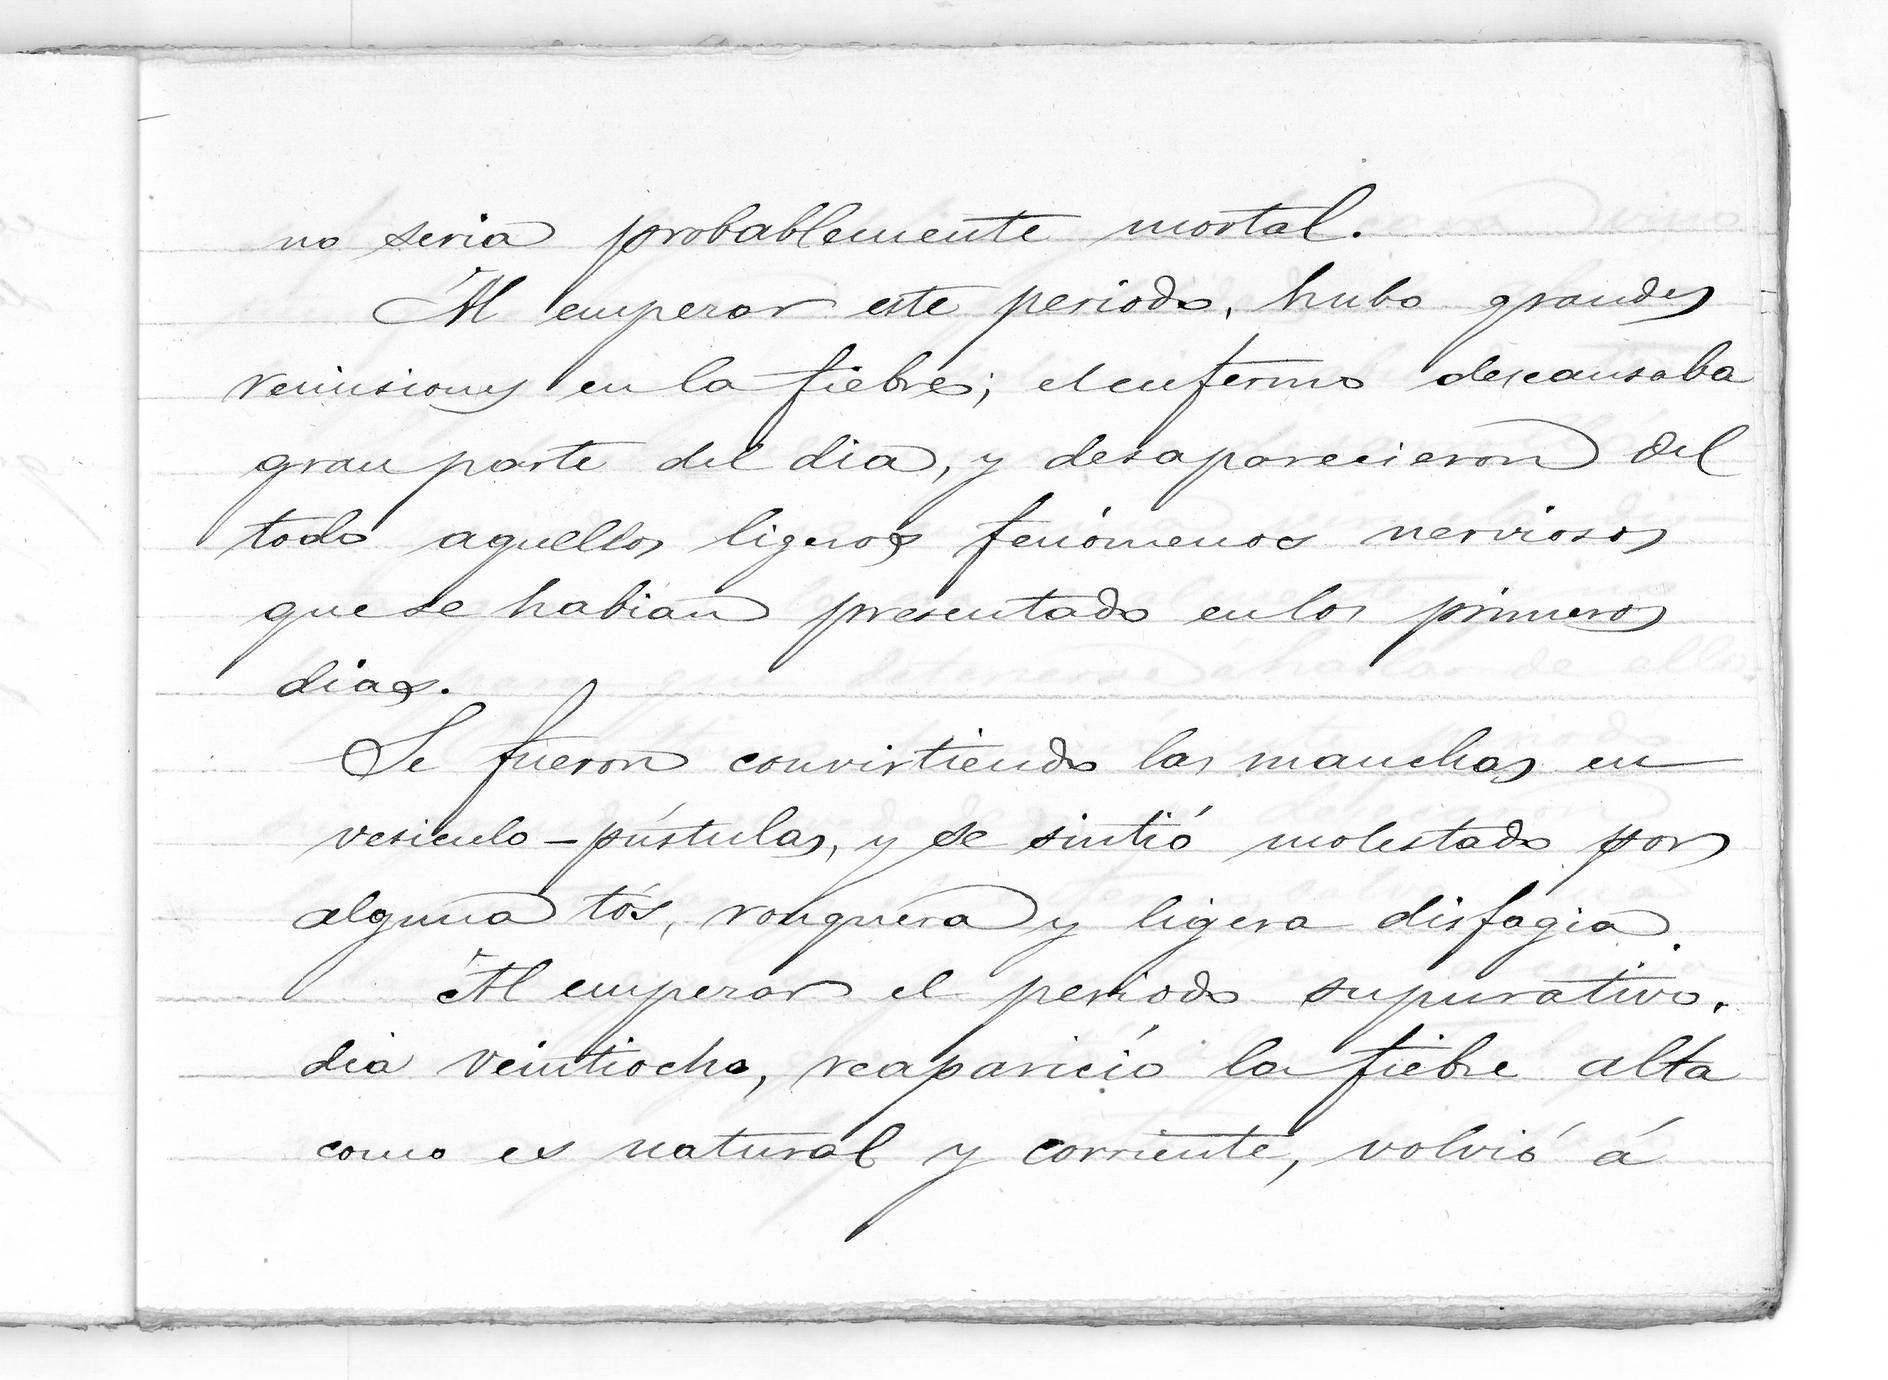 no seria probablemente mortal.
Al emperar este periodo, hubo grandes
remisiones en la fiebre; el enfermo descansaba
gran parte del dia, y desaparecieron del
todo aquellos ligeros fenómenos nerviosos
que se habian presentado en los primeros
dias.
Se fueron convirtiendo las manchas en
vesiculo-pústulas, y se sintió molestado por
alguna tós, ronquera y ligera disfagia.
Al emperar el periodo supurativo,
dia veintiocho, reaparició la fiebre alta
como es natural y corriente, volvió á